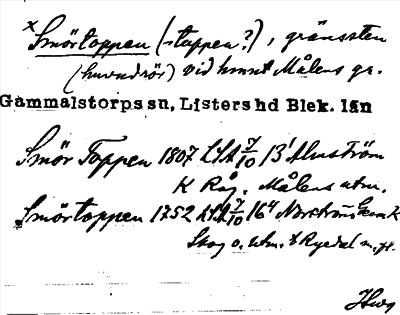 x Smörtoppen (-tappen?), gränssten
(huvudrör) vid hmnt Målens gr.
Gammalstorps sn, Listers hd Blek. län
Smör Toppen 1807 LSA 7/10 13' Almström
K Råg. Målens utm.
Smörtoppen 1752 LSA 7/10 16"
Skog o. utm. t Ryedal m. fl.